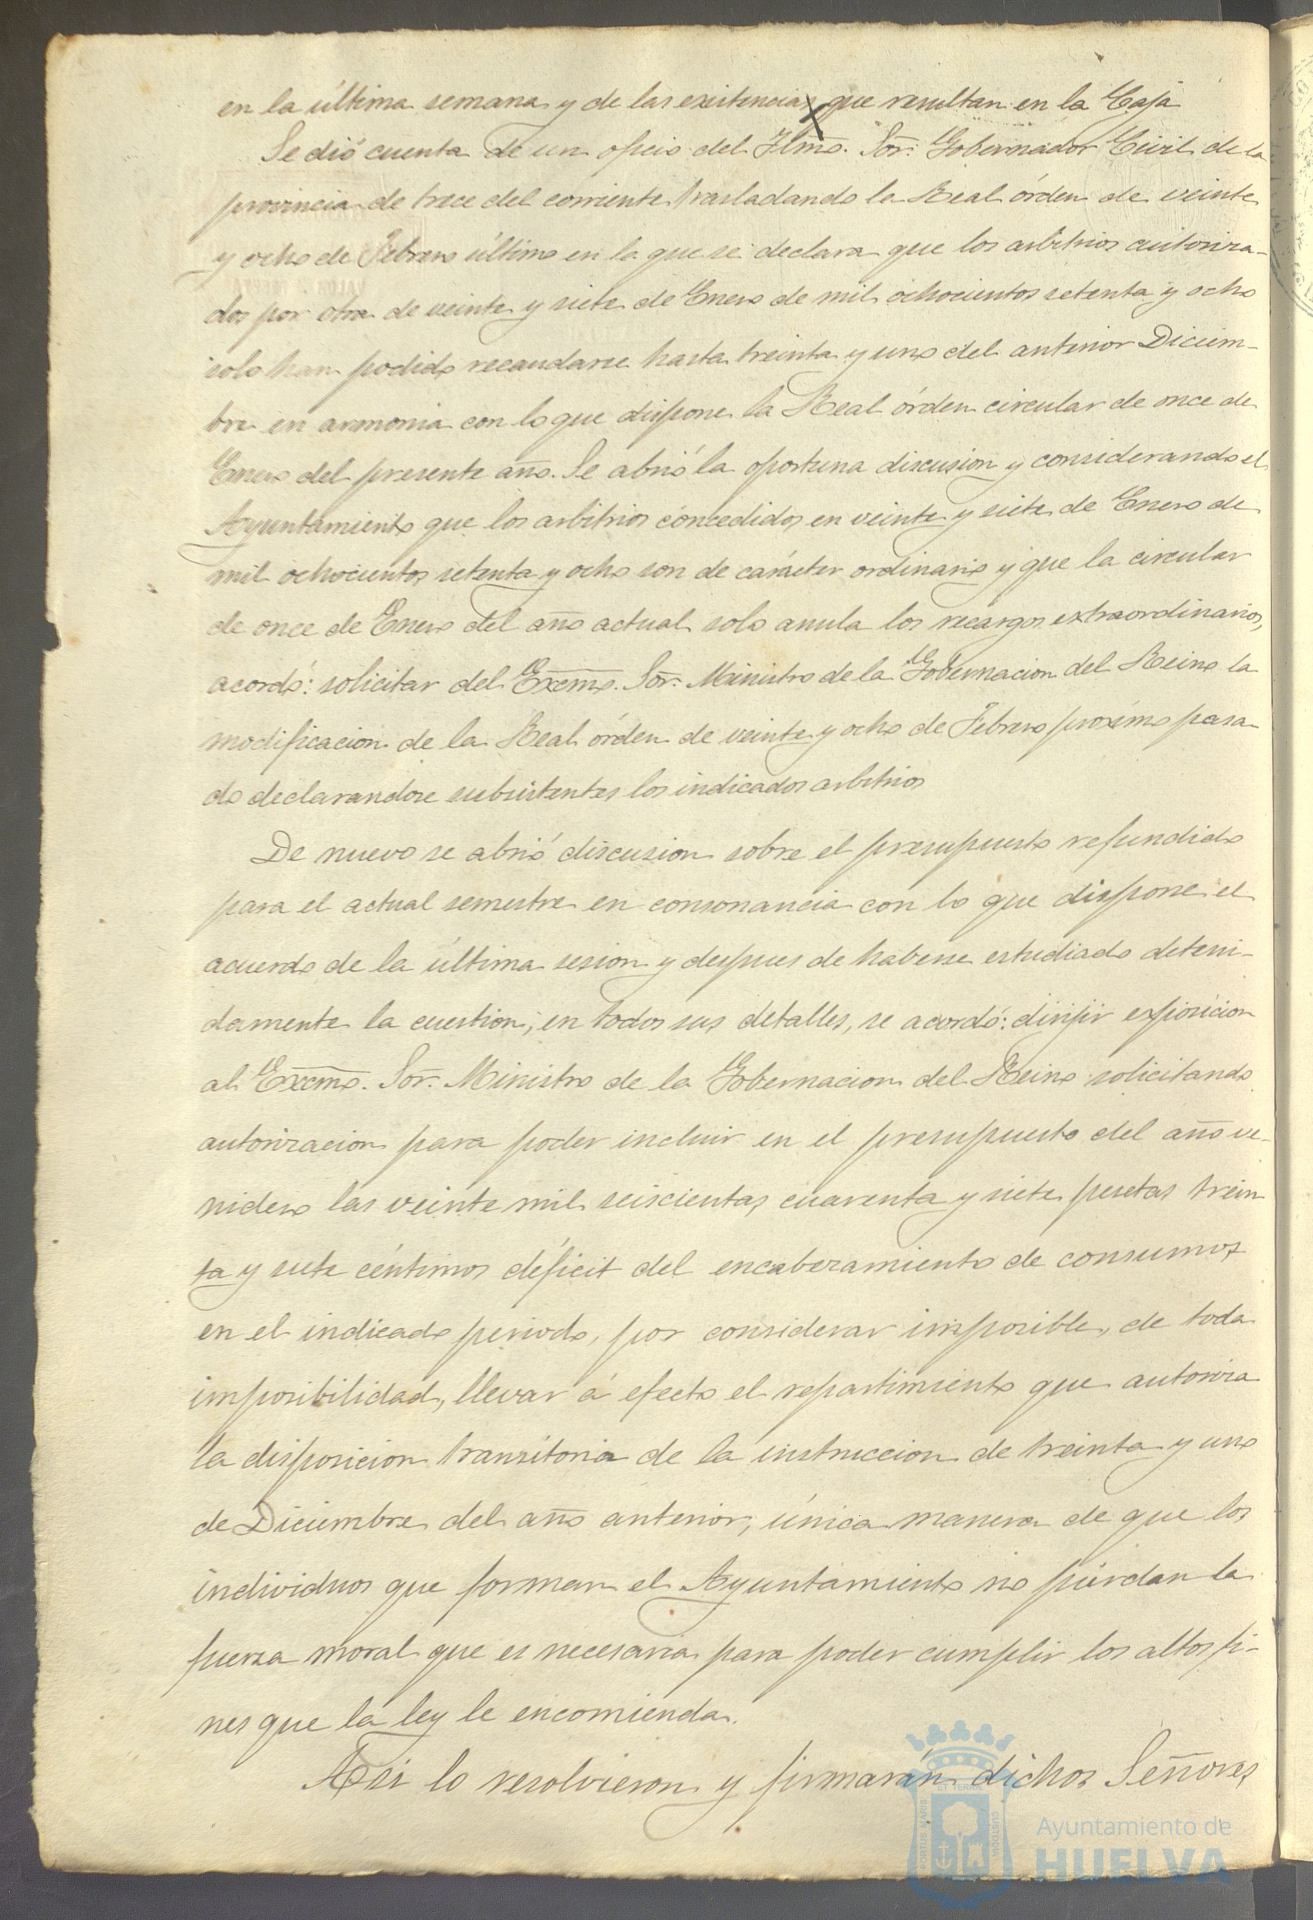 en la última semana y de las existencias que resultan en la Caja
Se dió cuenta de un oficio del Ilmo. Sor. Gobernador Civil de la
provincia de trece del corriente trasladando la Real órden de veinte
y ocho de Febrero último en la que se declara que los arbitrios autoriza-
dos por otra de veinte y siete de Enero de mil ochocientos setenta y ocho
solo han podido recaudarse hasta treinta y uno del anterior Diciem-
bre en armonia con lo que dispone la Real órden circular de once de
Enero del presente año. Se abrió la oportuna discusion y considerando el
Ayuntamiento que los arbitrios concedidos en veinte y siete de Enero de
mil ochocientos setenta y ocho son de carácter ordinario y que la circular
de once de Enero del año actual solo anula los recargos extraordinarios,
acordó: solicitar del Excmo. Sor. Ministro de la Gobernacion del Reino la
modificacion de la Real órden de veinte y ocho de Febrero proximo pasa-
do declarandose subsistentes los indicados arbitrios
De nuevo se abrió discusion sobre el presupuesto refundido
para el actual semestre en consonancia con lo que dispone el
acuerdo de la última sesion y despues de haberse estudiado deteni-
damente la cuestion, en todos sus detalles, se acordó: dirijir exposicion
al Excmo. Sor. Ministro de la Gobernacion del Reino solicitando
autorizacion para poder incluir en el presupuesto del año ve-
nidero las veinte mil seiscientas cuarenta y siete pesetas trein
ta y siete céntimos déficit del encabezamiento de consumos
en el indicado periodo, por considerar imposible, de toda
imposibilidad, llevar á efecto el repartimiento que autoriza
la disposicion transitoria de la instruccion de treinta y uno
de Diciembre del año anterior, única manera de que los
individuos que forman el Ayuntamiento no pierdan la
fuerza moral que es necesaria para poder cumplir los altos fi-
nes que la ley le encomienda.
Asi lo resolvieron y firmarán dichos Señores
Ayuntamiento de
HUELVA